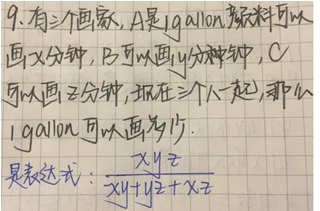 9.有三个画家,A是1gallon颜料可以
画x分钟,B可以画y分种钟,C
可以画z分钟,现在三个人一起,那么
1gallon可以画多少.
是表达式: xyz/(xy+yz+xz)